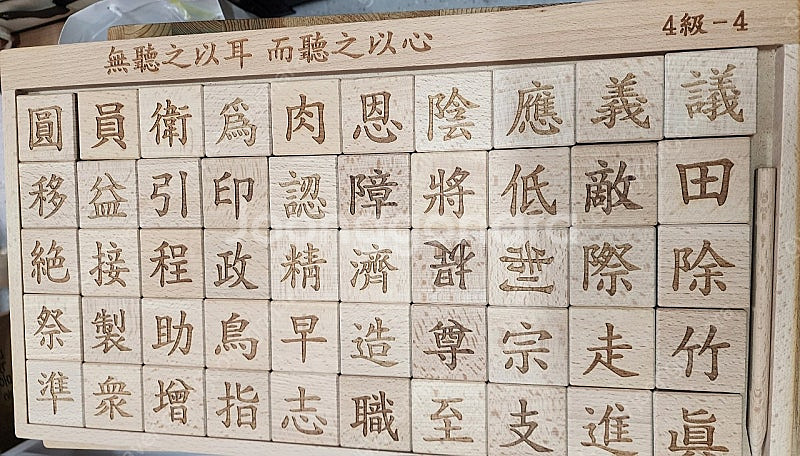 無聽之以耳 而聽之以心
4級-4
圓員衛爲肉恩陰應義議
移益引印認障將低敵田
絶接程政精濟提制際除
祭製助鳥早造尊宗走竹
準衆增指志職至支進眞